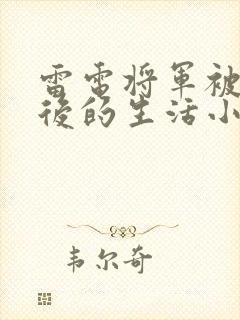 雷電将軍被
後的生活小
韦尔奇